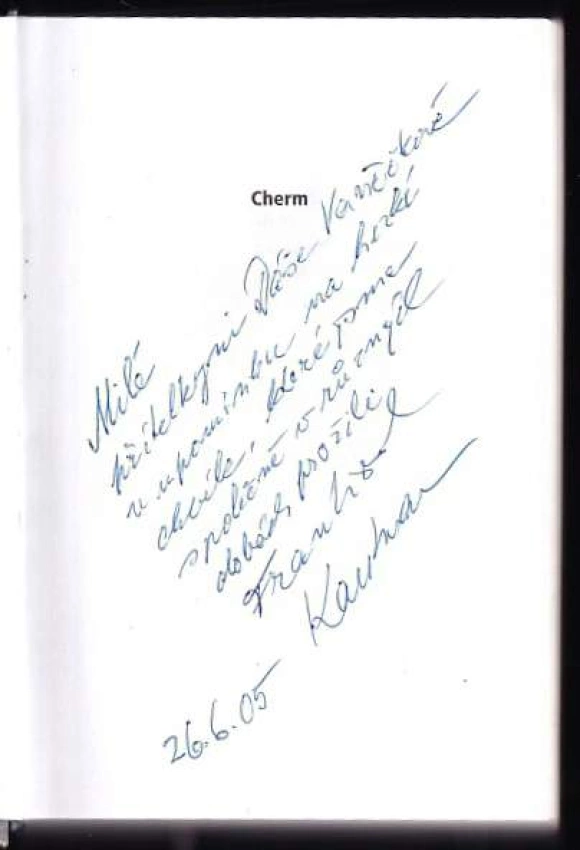 Cherm
Milé
přítelkyni Dáše Vaněčkové
v upomínku na hezké
chvíle, které jsme
společně v různých
dobách prožili
František
Kautman
26.6.05